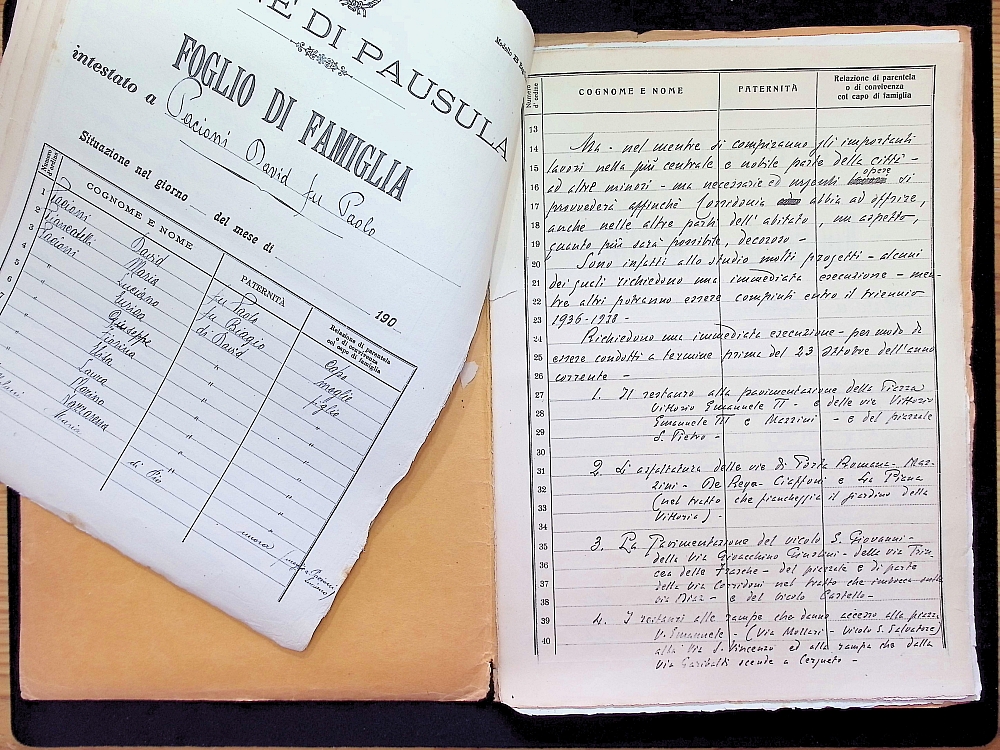 E DI PAUSULA
Modello
FOGLIO DI FAMIGLIA
intestato a Pacioni David fu Paolo
Situazione nel giorno del mese di 190
Numero d'ordine
COGNOME E NOME
PATERNITÀ
Relazione di parentela o di convivenza col capo di famiglia
1 Pacioni David fu Paolo Capo
2 Maria fu Biagio moglie
3 Pacioni Luciano di David figlio
4 " " "
5 " Giuseppe " "
6
7
Laura
Marino
Maria
di Pio
nuora
Numero d'ordine
COGNOME E NOME
PATERNITÀ
Relazione di parentela
o di convivenza
col capo di famiglia
13
14 Ma - nel mentre si compiranno gli importanti
15 lavori nella più centrale e nobile parte della città -
16 ad altre minori - ma necessarie ed urgenti opere si
17 provvederà affinchè Corridonia abbia ad offrire,
18 anche nelle altre parti dell'abitato, un aspetto,
19 quanto più sarà possibile, decoroso -
20 Sono infatti allo studio molti progetti - alcuni
21 dei quali richiedono una immediata esecuzione - men-
22 tre altri potranno essere compiuti entro il triennio
23 1936-1938 -
24 Richiedono una immediata esecuzione - per modo di
25 essere condotti a termine prima del 23 Ottobre dell'anno
26 corrente -
27 1. Il restauro alla pavimentazione della Piazza
28 Vittorio Emanuele II - e delle vie Vittorio
29 Emanuele III e Mazzini - e del piazzale
30 S. Pietro -
31 2. L'asfaltatura delle vie di Porta Romana - Maz-
32 zini - De Reya - Ciaffoni e La Piana
33 (nel tratto che fiancheggia il giardino della
34 Vittoria) -
35 3. La Pavimentazione del vicolo S. Giovanni -
36 della Via Gioacchino - della via Trin-
37 cea delle Frasche - del piazzale e di parte
38 della via Corridoni nel tratto che imbocca sulla
via Diaz - e del vicolo Castello -
39 4. I restauri alle rampe che danno accesso alla piazza
40 V. Emanuele - (Via Mollari - Vicolo S. Salvatore)
alla Via S. Vincenzo ed alla rampa che dalla
via Garibaldi scende a Cerqueto -